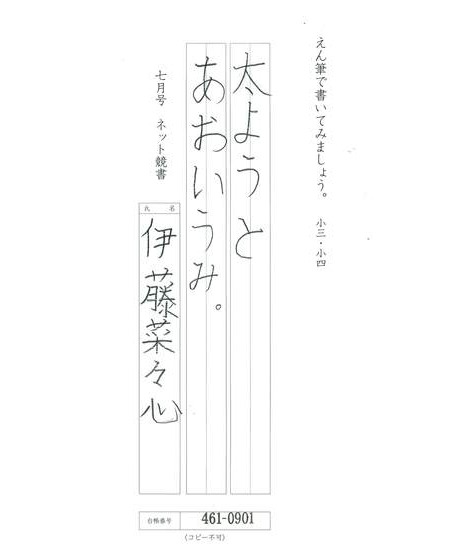 えん筆で書いてみましょう。 小三・小四
太ようと
あおいうみ。
七月号 ネット競書
氏名
伊藤菜々心
台帳番号 461-0901
(コピー不可)